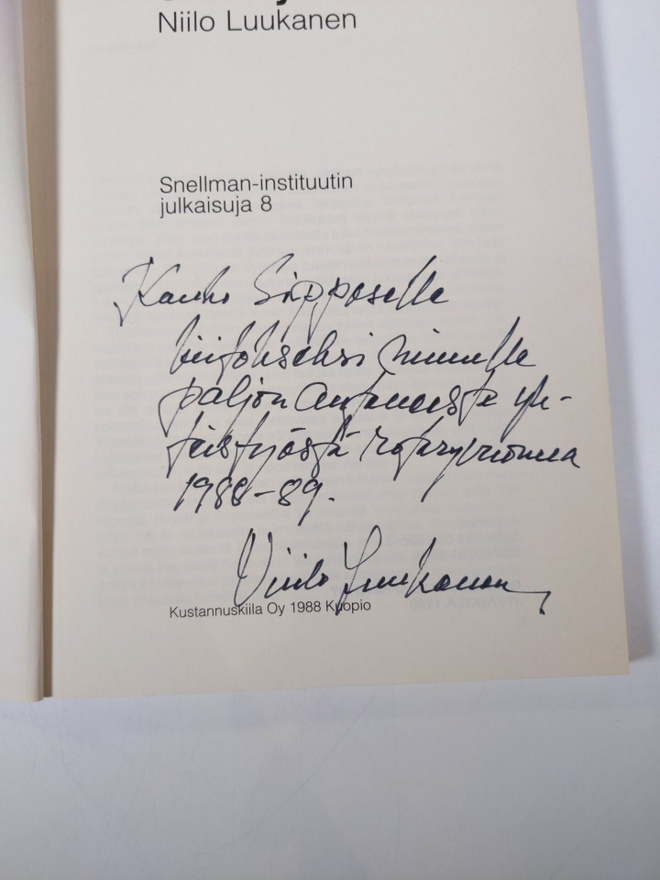 Niilo Luukanen
Snellman-instituutin
julkaisuja 8
Kauko Sipposelle
kiitokseksi minulle
paljon antaneesta yh-
teistyöstä rotaryvuonna
1988-89.
Niilo Luukanen
Kustannuskiila Oy 1988 Kuopio